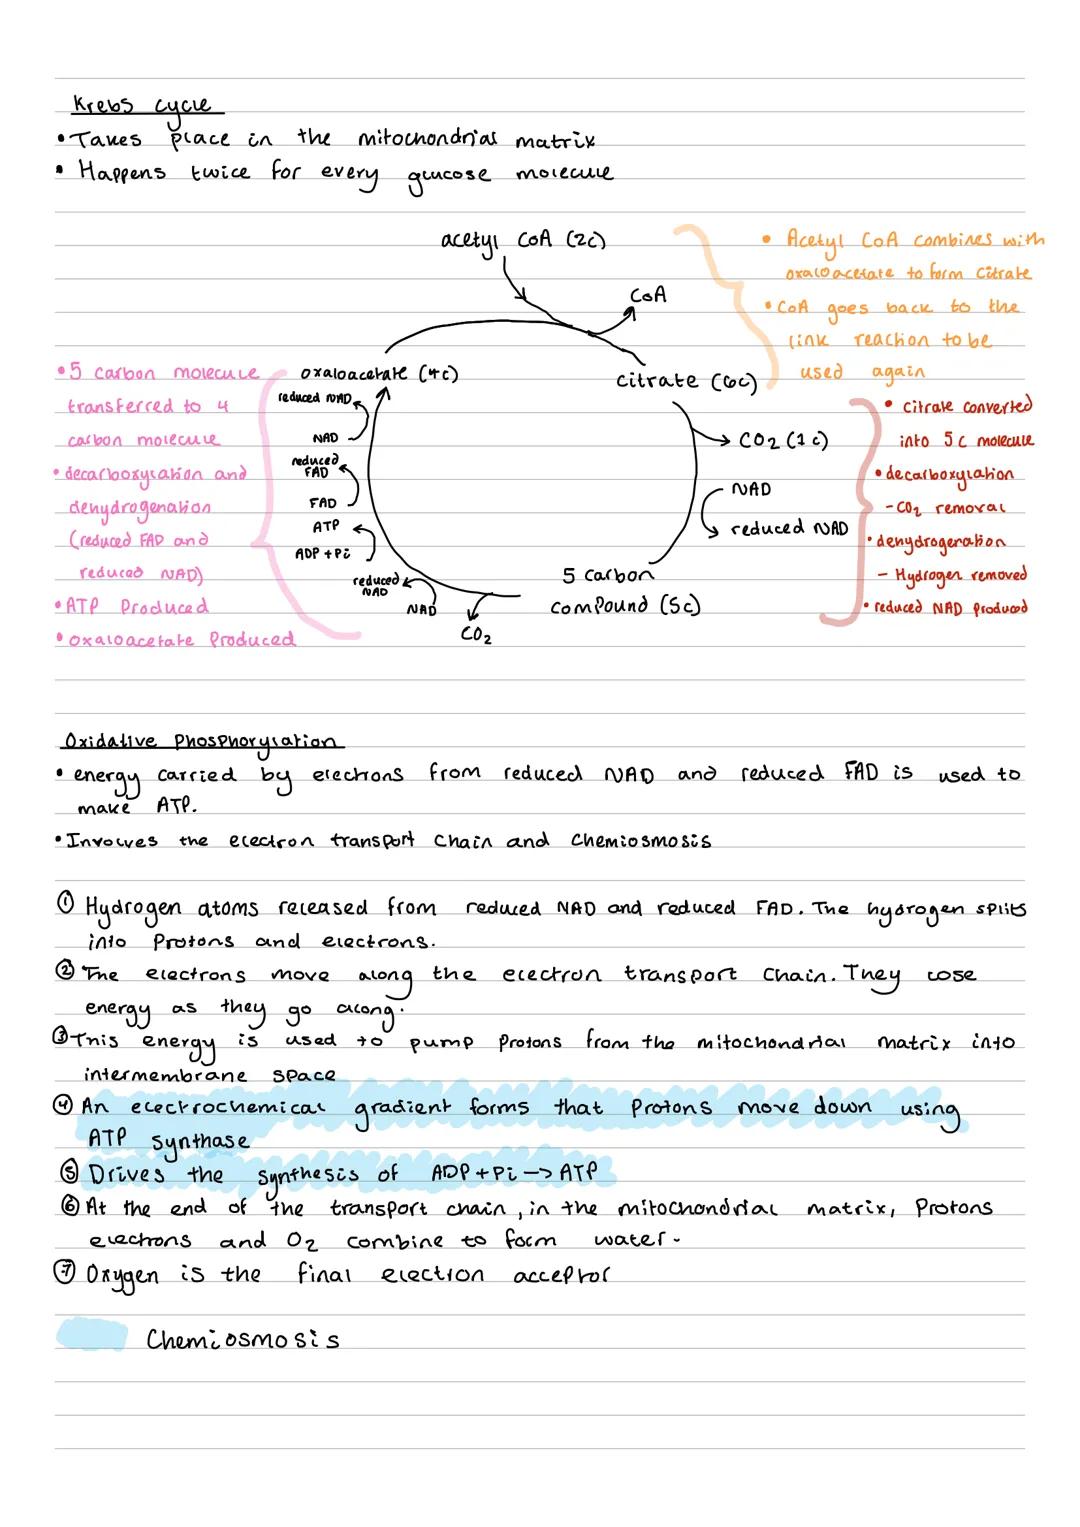 Krebs cycle
• Takes place in the mitochondrial matrix
• Happens twice for every glucose molecule
acetyl CoA (2c)
CoA
oxaloacetate (4c)
citrate (6c)
CO2 (1c)
NAD
reduced NAD
5 carbon
compound (5c)
reduced NAD
NAD
reduced
FAD
FAD
ATP
ADP + Pi
reduced
NAD
NAD
CO2
• Acetyl CoA combines with
oxaloacetate to form citrate
• CoA goes back to the
link reaction to be
used again
• citrate converted
into 5c molecule
• decarboxylation
- CO2 removal
• dehydrogenation
- Hydrogen removed
• reduced NAD produced
• 5 carbon molecule
transferred to 4
carbon molecule
• decarboxylation and
dehydrogenation
(reduced FAD and
reduced NAD)
• ATP Produced
• oxaloacetate Produced
Oxidative Phosphorylation
• energy carried by electrons from reduced NAD and reduced FAD is used to
make ATP.
• Involves the electron transport chain and Chemiosmosis
① Hydrogen atoms released from reduced NAD and reduced FAD. The hydrogen splits
into Protons and electrons.
② The electrons move along the electron transport Chain. They lose
energy as they go along.
③ This energy is used to pump Protons from the mitochondrial matrix into
intermembrane space
④ An electrochemical gradient forms that Protons move down using
ATP synthase
⑤ Drives the synthesis of ADP + Pi → ATP
⑥ At the end of the transport chain, in the mitochondrial matrix, Protons
electrons and O2 combine to form water.
⑦ Oxygen is the final electron acceptor
Chemiosmosis